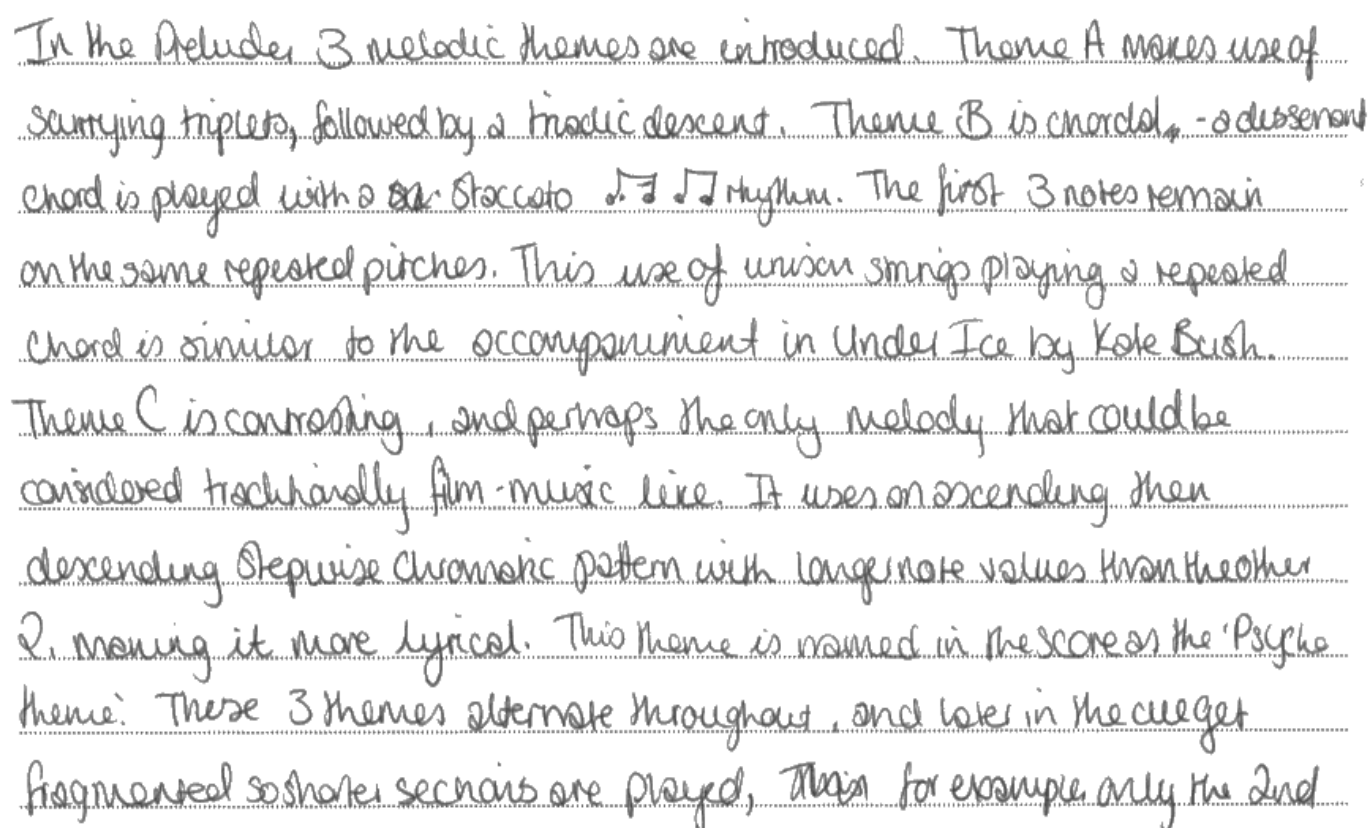 In the Prelude, 3 melodic themes are introduced. Theme A makes use of
scurrying triplets, followed by a triadic descent. Theme B is chordal, - a dissonant
chord is played with a staccato ♪♬ ♫ rhythm. The first 3 notes remain
on the same repeated pitches. This use of unison strings playing a repeated
chord is similar to the accompaniment in Under Ice by Kate Bush.
Theme C is contrasting, and perhaps the only melody that could be
considered traditionally film-music like. It uses an ascending then
descending stepwise chromatic pattern with longer note values than the other
2, making it more lyrical. This theme is named in the score as the 'Psycho
theme'. These 3 themes alternate throughout, and later in the cue get
fragmented so shorter sections are played, for example, only the 2nd